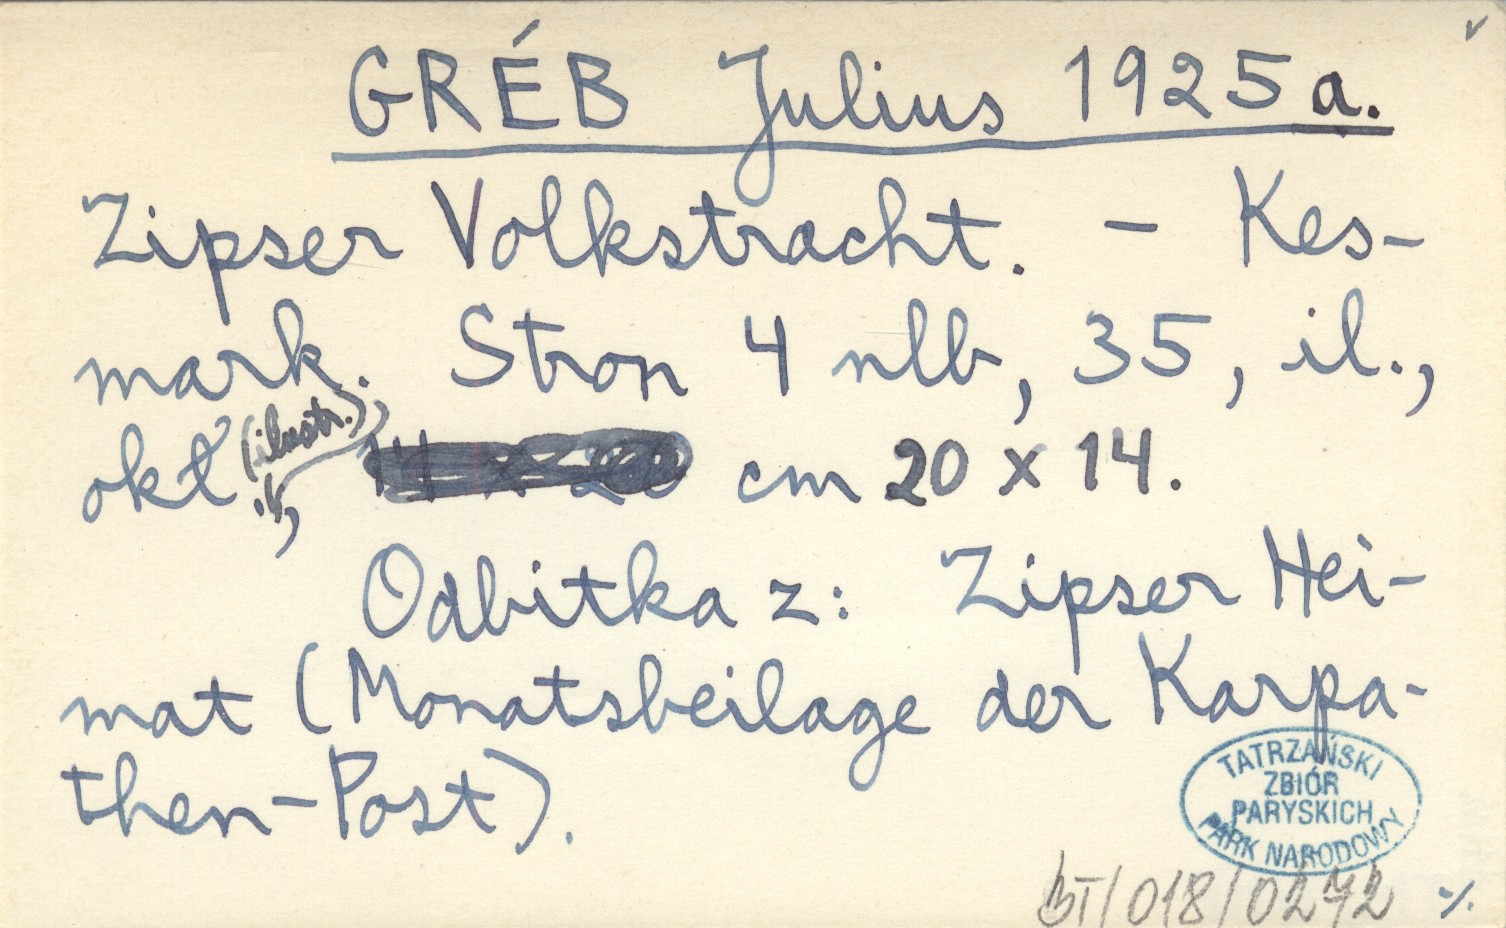 GRÉB Julius 1925 a.
Zipser Volkstracht. - Kes-
mark. Stron 4 nlb, 35, il.,
okł. (ilustr.), cm 20 x 14.
Odbitka z: Zipser Hei-
mat (Monatsbeilage der Karpa-
then-Post).
TATRZAŃSKI
ZBIÓR
PARYSKICH
PARK NARODOWY
BT/018/0272 %.